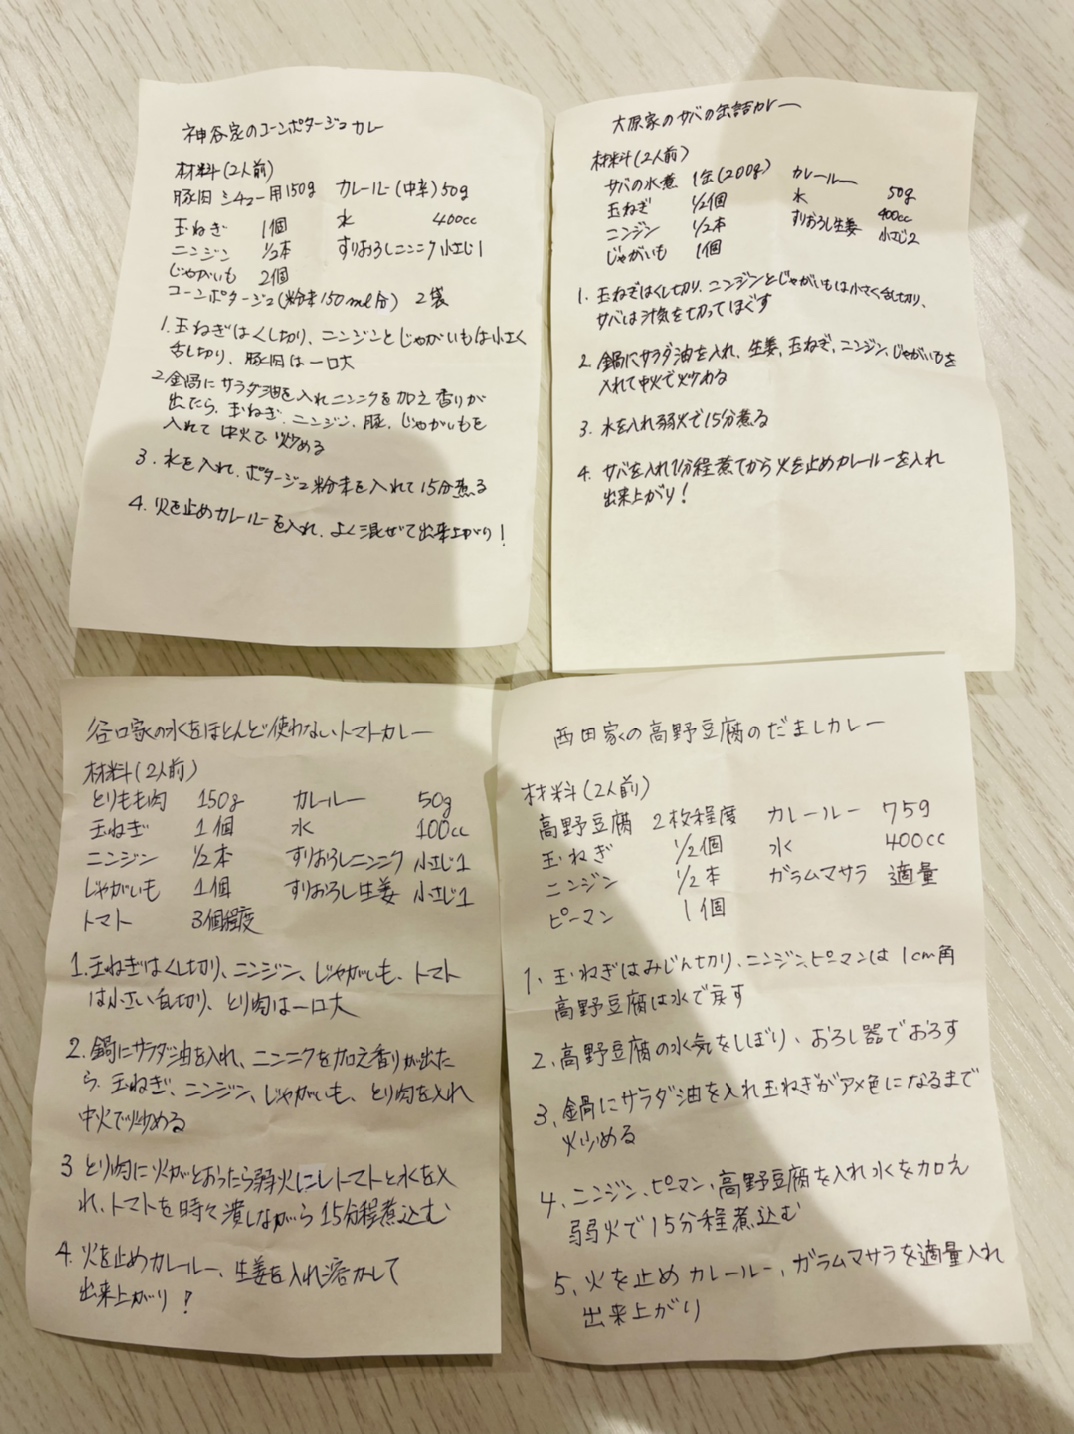 神谷家のコーンポタージュカレー
材料(2人前)
豚肉シチュー用150g カレールー(中辛)50g
玉ねぎ 1個 水 400cc
ニンジン 1/2本 すりおろしニンニク 小さじ1
じゃがいも 2個
コーンポタージュ(粉末150ml分) 2袋
1.玉ねぎはくし切り、ニンジンとじゃがいもは小さく
乱切り、豚肉は一口大
2.鍋にサラダ油を入れニンニクを加え香りが
出たら、玉ねぎ、ニンジン、豚、じゃがいもを
入れて中火で炒める
3.水を入れ、ポタージュ粉末を入れて15分煮る
4.火を止めカレールーを入れ、よく混ぜて出来上がり!
大原家のサバの缶詰カレー
材料(2人前)
サバの水煮 1缶(200g) カレールー 50g
玉ねぎ 1/2個 水 400cc
ニンジン 1/2本 すりおろし生姜 小さじ2
じゃがいも 1個
1.玉ねぎはくし切り、ニンジンとじゃがいもは小さく乱切り、
サバは汁気を切ってほぐす
2.鍋にサラダ油を入れ、生姜、玉ねぎ、ニンジン、じゃがいもを
入れて中火で炒める
3.水を入れ弱火で15分煮る
4.サバを入れ1分程煮てから火を止めカレールーを入れ
出来上がり!
谷口家の水をほとんど使わないトマトカレー
材料(2人前)
とりもも肉 150g カレールー 50g
玉ねぎ 1個 水 100cc
ニンジン 1/2本 すりおろしニンニク 小さじ1
じゃがいも 1個 すりおろし生姜 小さじ1
トマト 3個程度
1.玉ねぎはくし切り、ニンジン、じゃがいも、トマト
は小さい乱切り、とり肉は一口大
2.鍋にサラダ油を入れ、ニンニクを加え香りが出た
ら、玉ねぎ、ニンジン、じゃがいも、とり肉を入れ
中火で炒める
3 とり肉に火がとおったら弱火にしトマトと水を入
れ、トマトを時々潰しながら15分程煮込む
4.火を止めカレールー、生姜を入れ溶かして
出来上がり!
西田家の高野豆腐のだましカレー
材料(2人前)
高野豆腐 2枚程度 カレールー 75g
玉ねぎ 1/2個 水 400cc
ニンジン 1/2本 ガラムマサラ 適量
ピーマン 1個
1、玉ねぎはみじん切り、ニンジン、ピーマンは1cm角
高野豆腐は水で戻す
2.高野豆腐の水気をしぼり、おろし器でおろす
3、鍋にサラダ油を入れ玉ねぎがアメ色になるまで
炒める
4、ニンジン、ピーマン、高野豆腐を入れ水を加え
弱火で15分程煮込む
5、火を止めカレールー、ガラムマサラを適量入れ
出来上がり